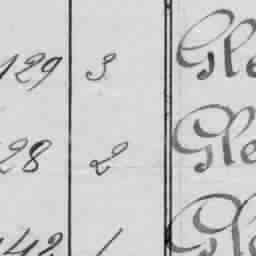 129 3 Gle
28 2 Gle
142 1 Gle